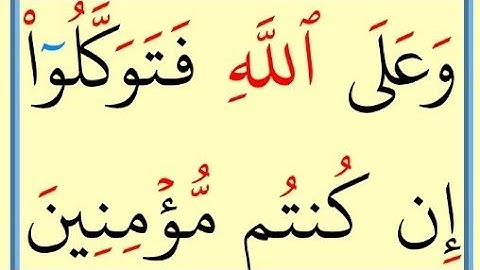 وَعَلَى ٱللَّهِ فَتَوَكَّلُوٓا۟
إِن كُنتُم مُّؤْمِنِينَ